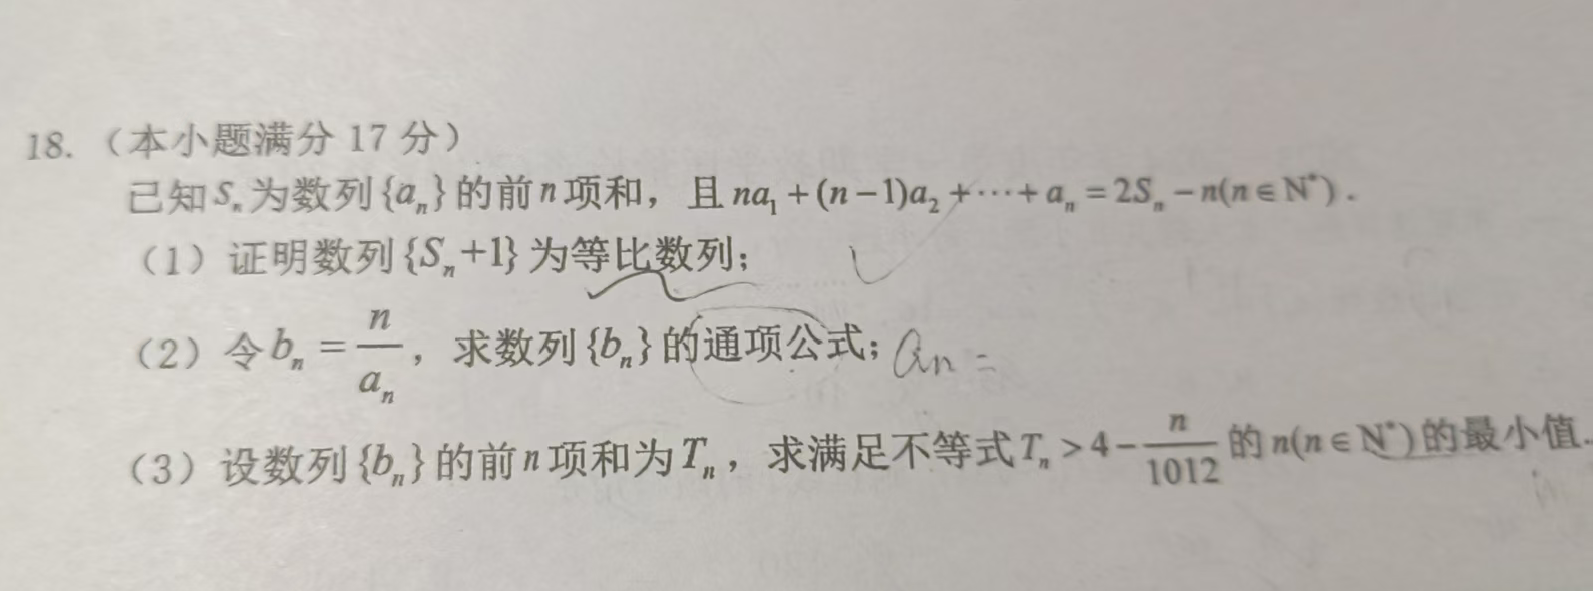 18.（本小题满分 17 分）
已知 Sₙ 为数列{aₙ}的前 n 项和，且 na₁+(n−1)a₂+⋯+aₙ=2Sₙ−n(n∈N*).
（1）证明数列{Sₙ+1}为等比数列；
（2）令 bₙ=n/aₙ，求数列{bₙ}的通项公式；aₙ=
（3）设数列{bₙ}的前 n 项和为 Tₙ，求满足不等式 Tₙ>4−n/1012 的 n(n∈N*)的最小值.